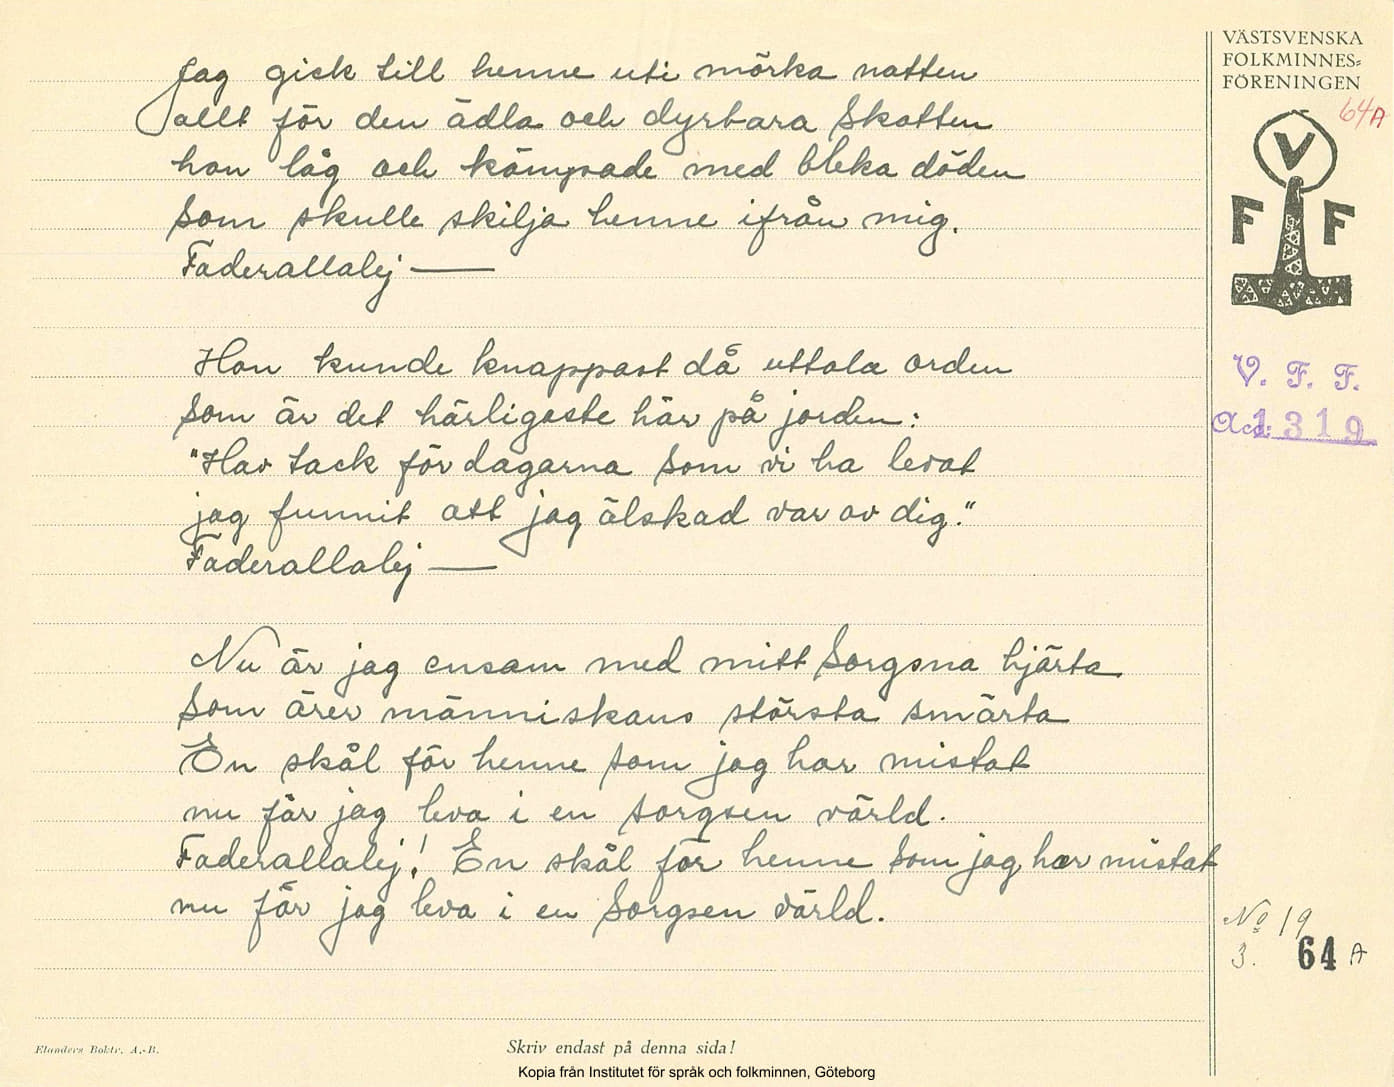 Jag gick till henne uti mörka natten
allt för den ädla och dyrbara skatten
hon låg och kämpade med bleka döden
som skulle skilja henne ifrån mig.
Faderallalej —
Hon kunde knappast då uttala orden
som är det härligaste här på jorden:
"Hav tack för dagarna som vi ha levat
jag funnit att jag älskad var av dig."
Faderallalej —
Nu är jag ensam med mitt sorgsna hjärta
som ärev människans största smärta
En skål för henne som jag har mistat
nu får jag leva i en sorgsen värld.
Faderallalej! En skål för henne som jag har mistat
nu får jag leva i en sorgsen värld.
VÄSTSVENSKA
FOLKMINNES-
FÖRENINGEN
64A
V
F F
V. F. F.
Acc: 1319
No 19
3. 64 A
Elanders Boktr. A.-B.
Skriv endast på denna sida!
Kopia från Institutet för språk och folkminnen, Göteborg